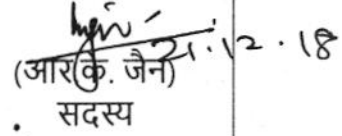 21.12.18
(आर.कु. जैन)
सदस्य